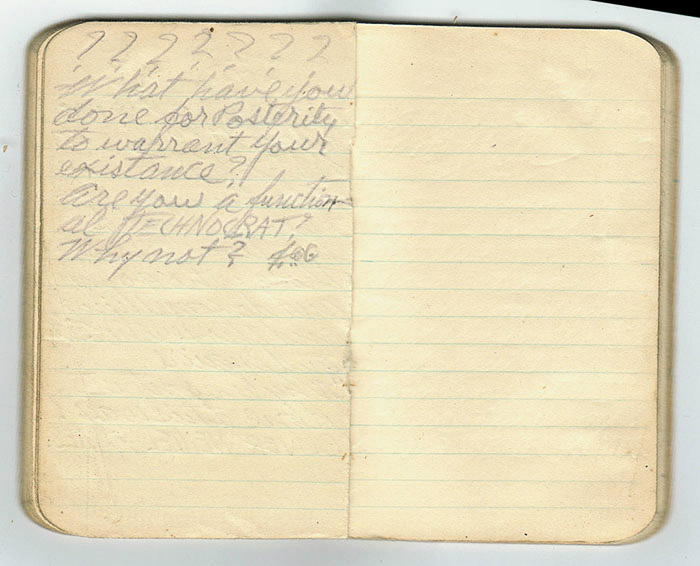 ? ? ? ? ? ? ?
What have you
done for Posterity
to warrant your
existance?
Are you a function-
al TECHNOCRAT?
Why not?